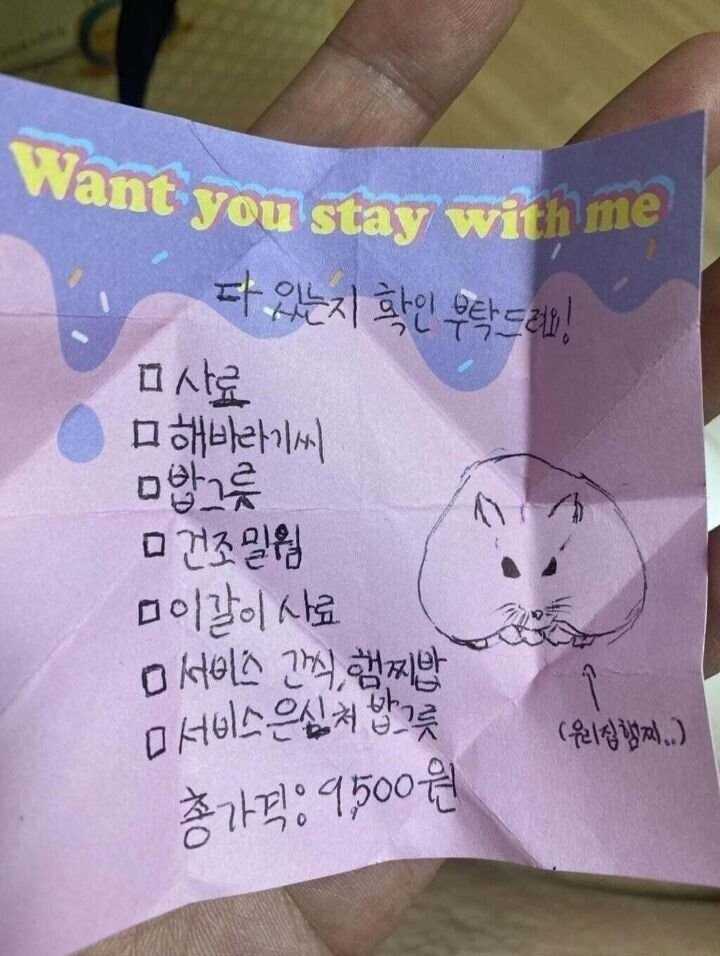 Want you stay with me
다 있는지 확인 부탁드려요!
□ 사료
□ 해바라기씨
□ 밥그릇
□ 건조밀웜
□ 이갈이 사료
□ 서비스 간식, 햄찌밥
□ 서비스 은신처 밥그릇
(우리집햄찌..)
총가격: 9,500원